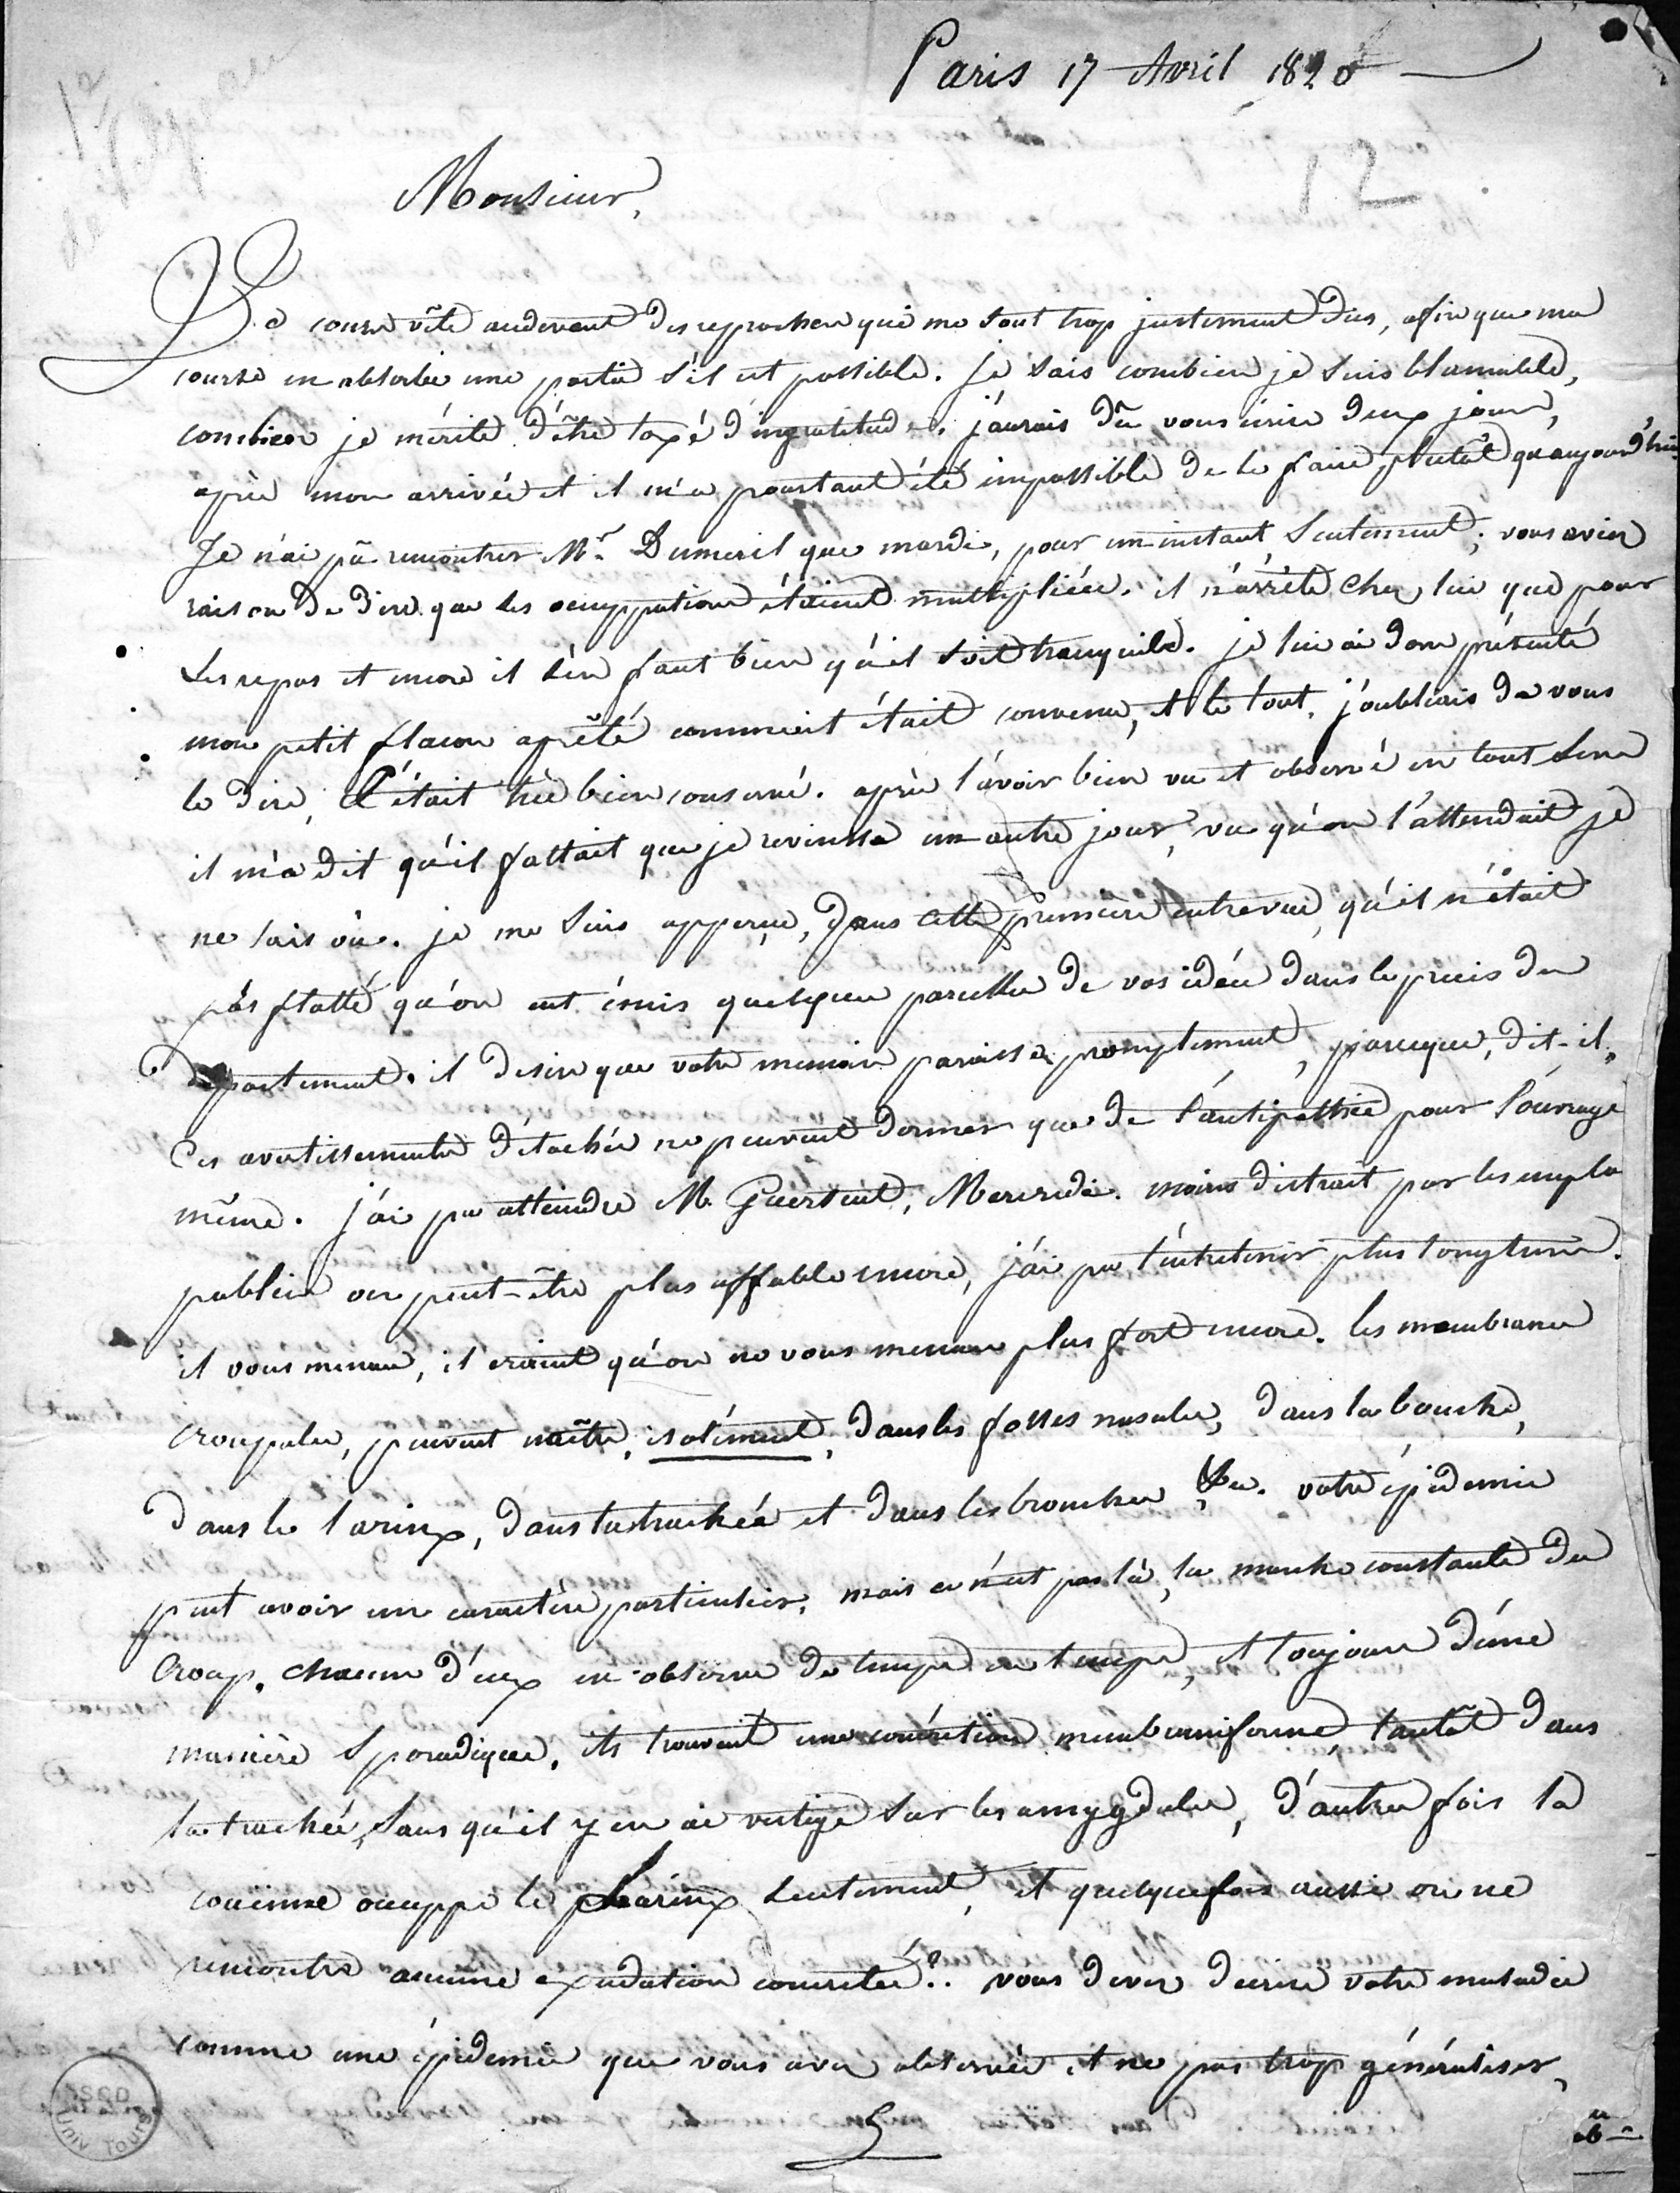 Paris 17 Avril 1820
12
Monsieur,
Je cours vîte audevant des reproches qui me sont trop justement dus, afin que ma
course en absorbe une partie s'il est possible. je sais combien je suis blamable,
combien je mérite d'être taxé d'ingratitude. j'aurais dû vous écrire deux jours
après mon arrivée et il m'a pourtant été impossible de le faire plutôt qu'aujourd'hui.
Je n'ai pû rencontrer Mr. Dumeril que mardi, pour un instant seulement; vous aviez
raison de dire que ses occuppations étaient multipliées. il n'arrête chez lui que pour
les repas et encore il s'en faut bien qu'il soit tranquile. je lui ai donc présenté
mon petit flacon aprêté comme il était convenu, et le tout, j'oubliais de vous
le dire, s'était très bien conservé. après l'avoir bien vu et observé en tout sens
il m'a dit qu'il fallait que je revinsse un autre jour, vu qu'on l'attendait je
ne sais où. je me suis apperçu, dans cette première entrevue, qu'il n'était
pas flatté qu'on eut émis quelques parcelles de vos idées dans le précis du
département. il desire que votre memoire paraisse promptement, parceque, dit-il,
ces avertissements détachés ne peuvent donner que de l'antipathie pour l'ouvrage
même. j'ai pu atteindre M. Guersent, Mercredi. moins distrait par les emplois
publics ou peut-être plus affable encore, j'ai pu l'entretenir plus longtems.
il vous menace, il craint qu'on ne vous menace plus fort encore. les membranes
croupales, peuvent naître, isolément, dans les fosses nasales, dans la bouche,
dans le larinx, dans la trachée et dans les bronches &c. votre épidemie
peut avoir un caractère particulier, mais ce n'est pas là, la marche constante du
croup. chacun d'eux en observe de temps en temps, et toujours d'une
manière sporadique. ils trouvent une concrétion membraniforme, tantôt dans
la trachée, sans qu'il y en ai vestige sur les amygdales, d'autres fois la
couenne occuppe le pharinx seulement, et quelquefois aussi on ne
rencontre aucune exsudation concrétée?.. vous devez décrire votre maladie
comme une épidemie que vous avez observée et ne pas trop généraliser,
SCD
Univ Tours